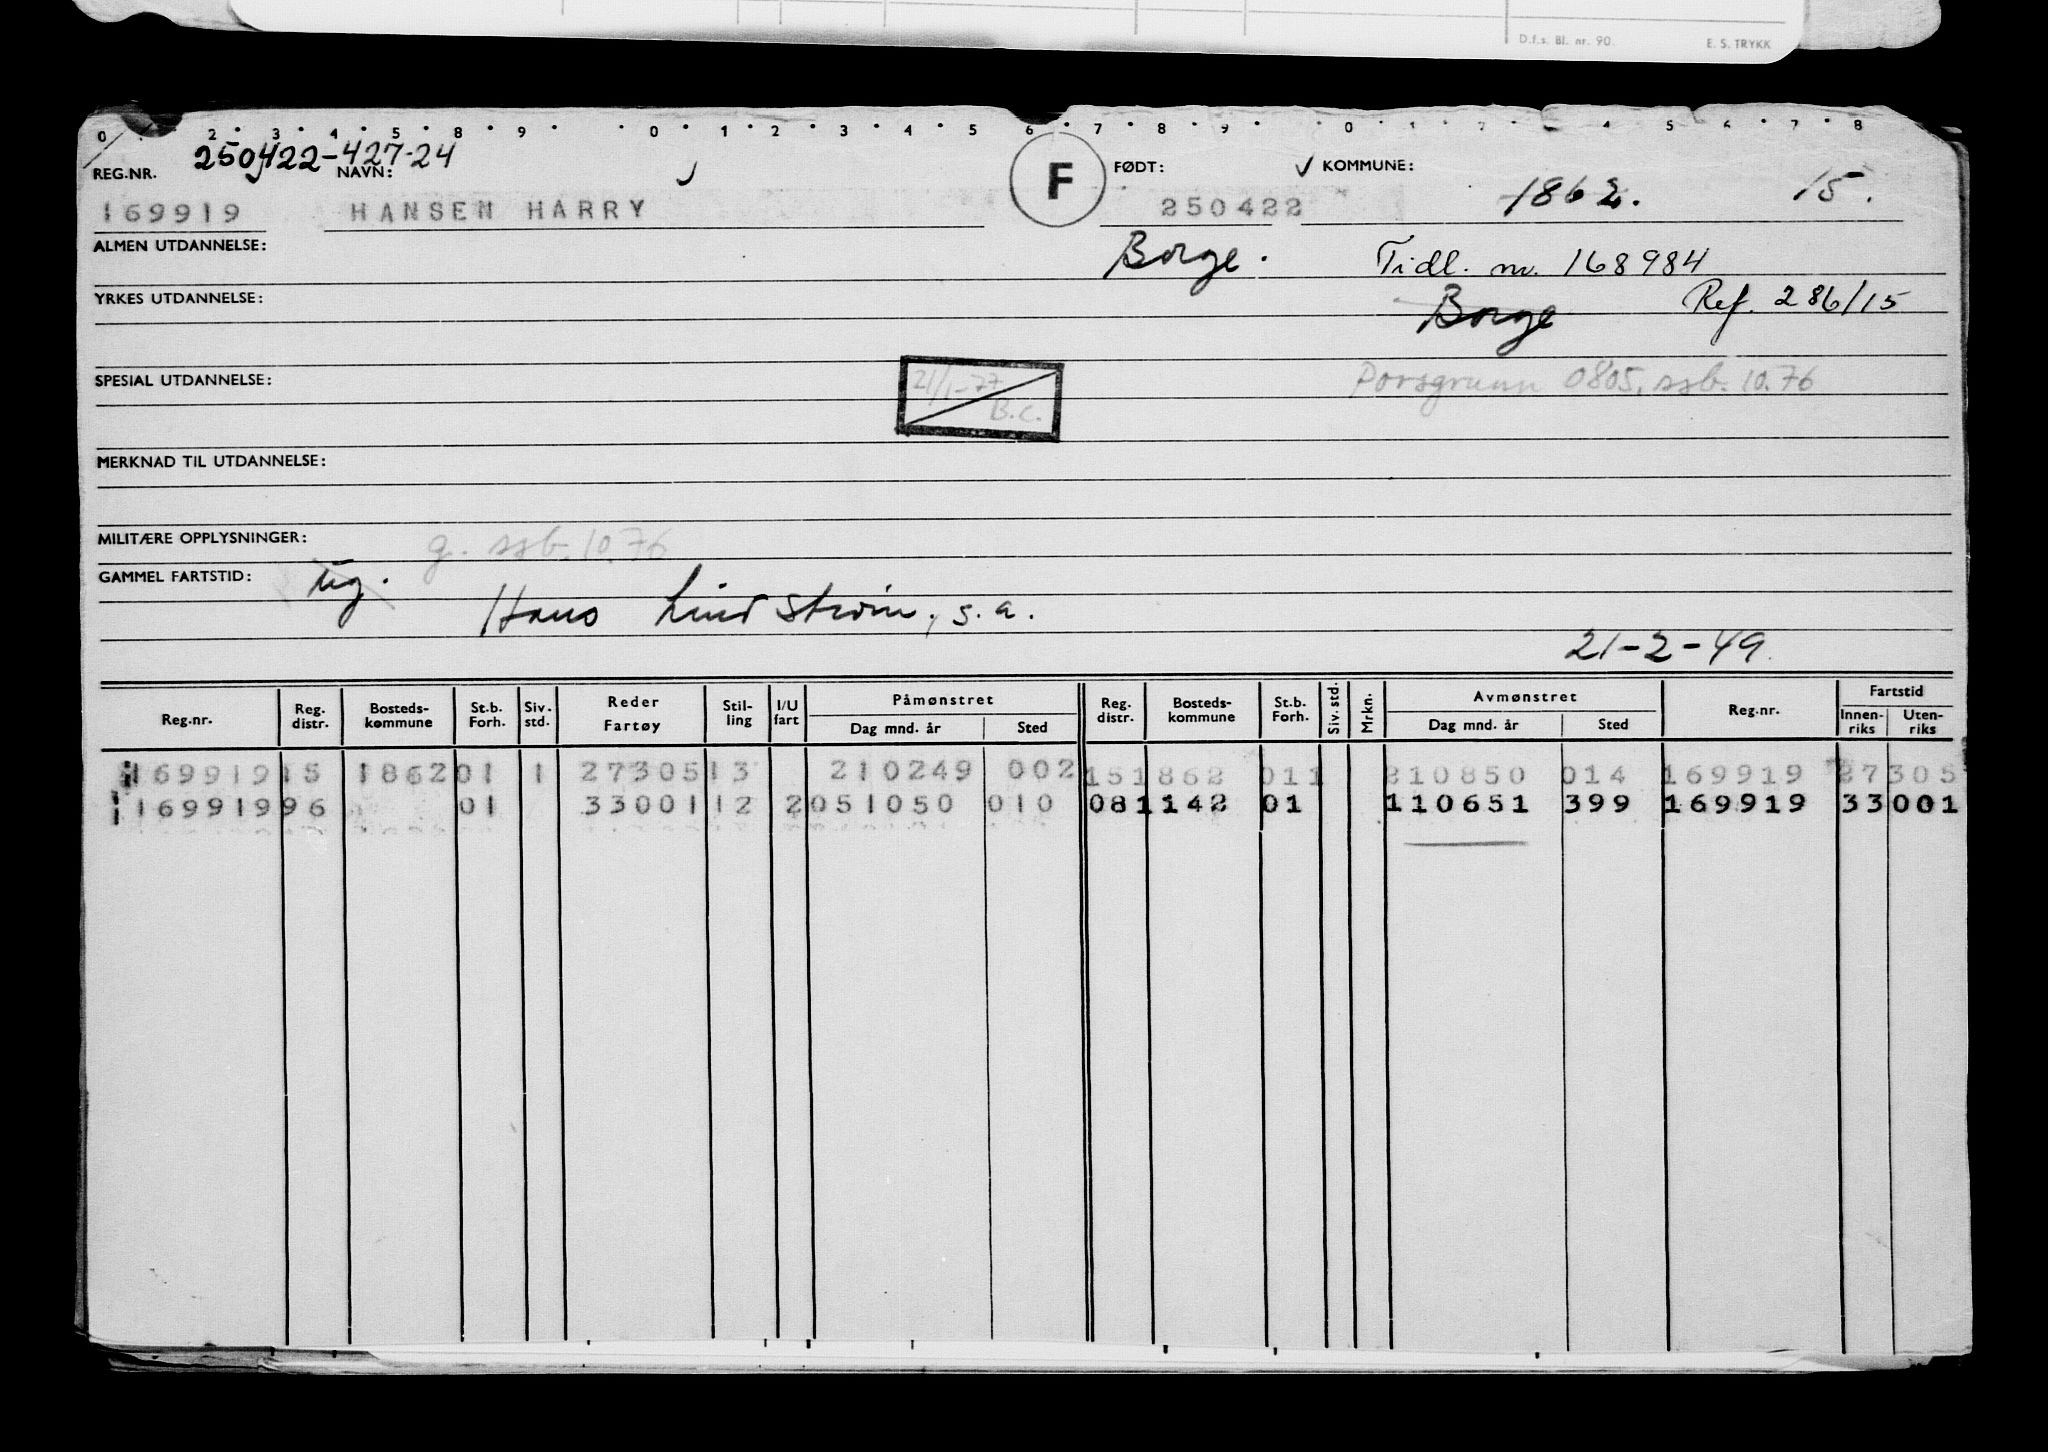 D.f.s. Bl. nr. 90. E. S. TRYKK
0 2 3 4 5 8 9 0 1 2 3 4 5 6 7 8 9 0 1 2 4 5 6 7 8
250422-427-24
REG.NR. NAVN: F FØDT: KOMMUNE:
169919 HANSEN HARRY 250422 1862. 15.
ALMEN UTDANNELSE: Borge. Tidl. nr. 168984
YRKES UTDANNELSE: Borge Ref. 286/15
SPESIAL UTDANNELSE: 21/1-77 B.C. Porsgrunn 0805, ssb. 10.76
MERKNAD TIL UTDANNELSE:
MILITÆRE OPPLYSNINGER: g. ssb. 10.76
GAMMEL FARTSTID: ug.
Hans Lindstrøm, s.a.
21-2-49
Reg.nr. Reg. distr. Bosteds-kommune St.b. Forh. Siv. std. Reder Fartøy Stil-ling I/U fart Påmønstret Dag mnd. år Sted Reg. distr. Bosteds-kommune St.b. Forh. Siv. std. Mrkn. Avmønstret Dag mnd. år Sted Reg.nr. Fartstid Innen-riks Uten-riks
169919 15 1862 01 1 27305 13 210249 002 15 1862 01 1 210850 014 169919 27305
169919 96 01 33001 12 2 051050 010 08 1142 01 110651 399 169919 33001